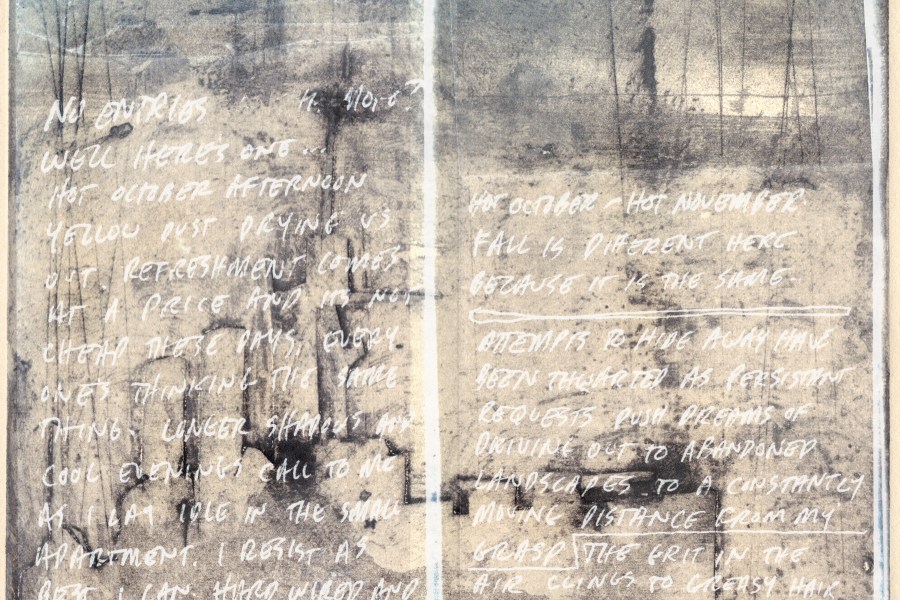 NO ENTRIES
WELL HERE'S ONE...
HOT OCTOBER AFTERNOON
YELLOW DUST DRYING US
OUT REFRESHMENT COMES
AT A PRICE AND ITS NOT
CHEAP THESE DAYS, EVERY
ONE'S THINKING THE SAME
THING. LONGER SHADOWS AND
COOL EVENINGS CALL TO ME
AS I LAY IDLE IN THE SMALL
APARTMENT. I RESIST AS
BEST I CAN. HARD WIRED AND
HOT OCTOBER - HOT NOVEMBER
FALL IS DIFFERENT HERE
BECAUSE IT IS THE SAME
ATTEMPTS TO HIDE AWAY HAVE
BEEN THWARTED AS PERSISTANT
REQUESTS PUSH DREAMS OF
DRIVING OUT TO ABANDONED
LANDSCAPES TO A CONSTANTLY
MOVING DISTANCE FROM MY
GRASP THE GRIT IN THE
AIR CLINGS TO GREASY HAIR